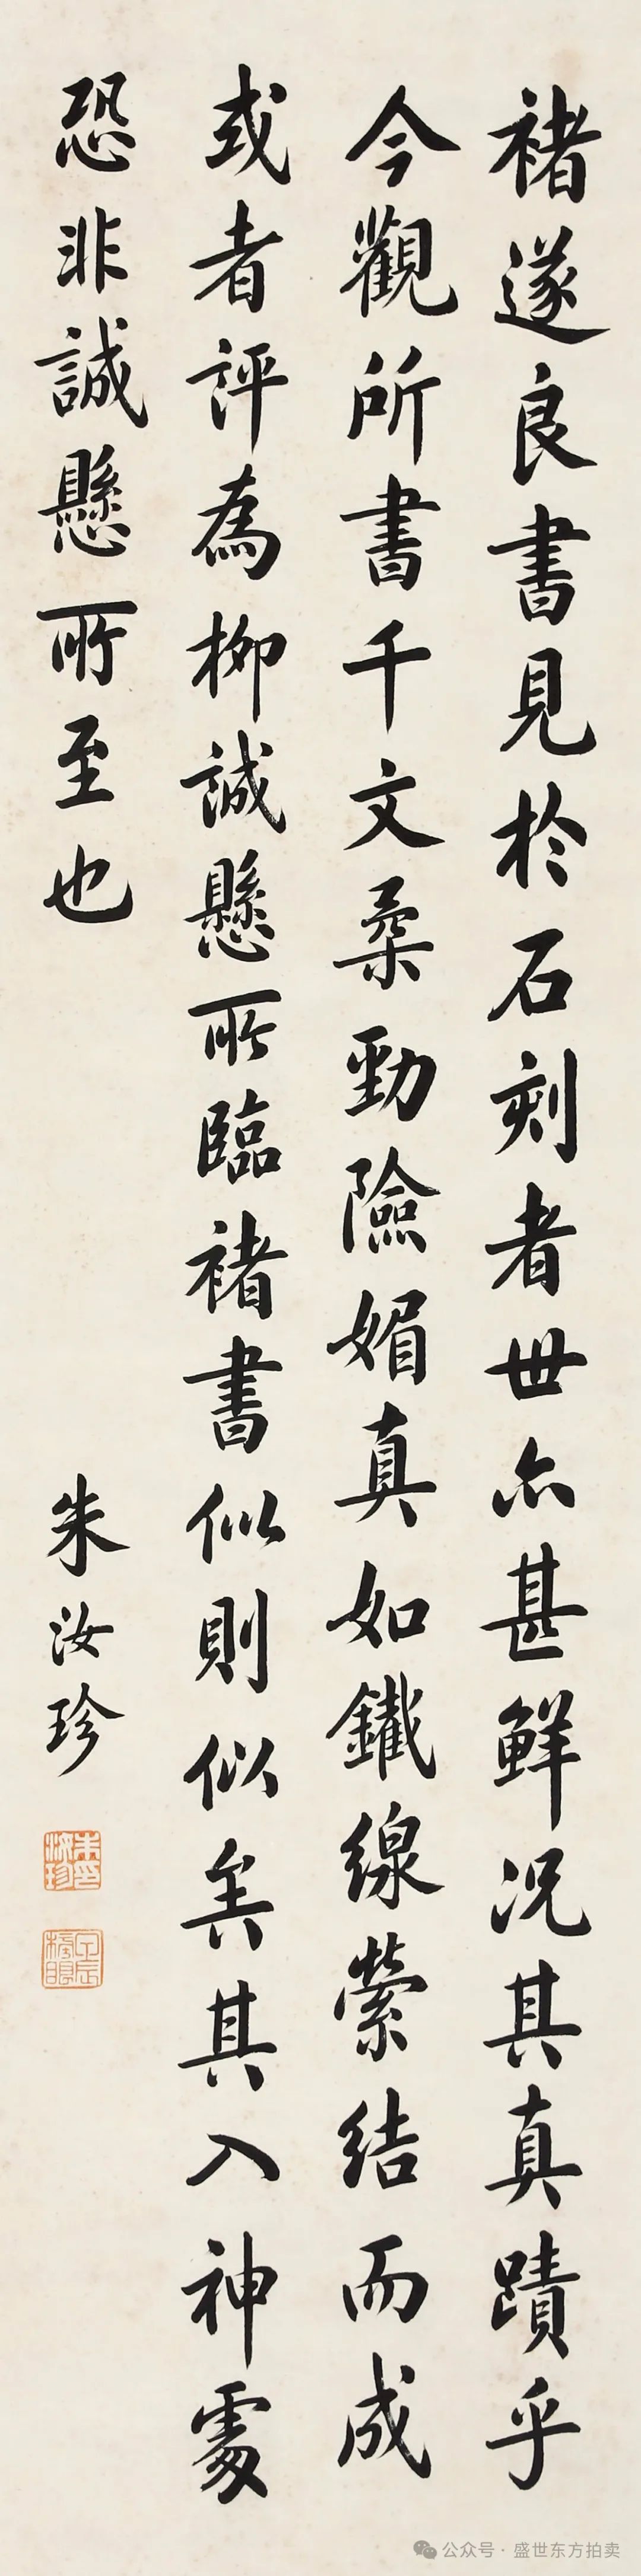 褚遂良書見於石刻者世亦甚鮮況其真蹟乎
今觀所書千文柔勁險媚真如鐵線縈結而成
或者評為柳誠懸所臨褚書似則似矣其入神處
恐非誠懸所至也
朱汝珍
朱汝珍印
甲辰榜眼
公众号·盛世东方拍卖